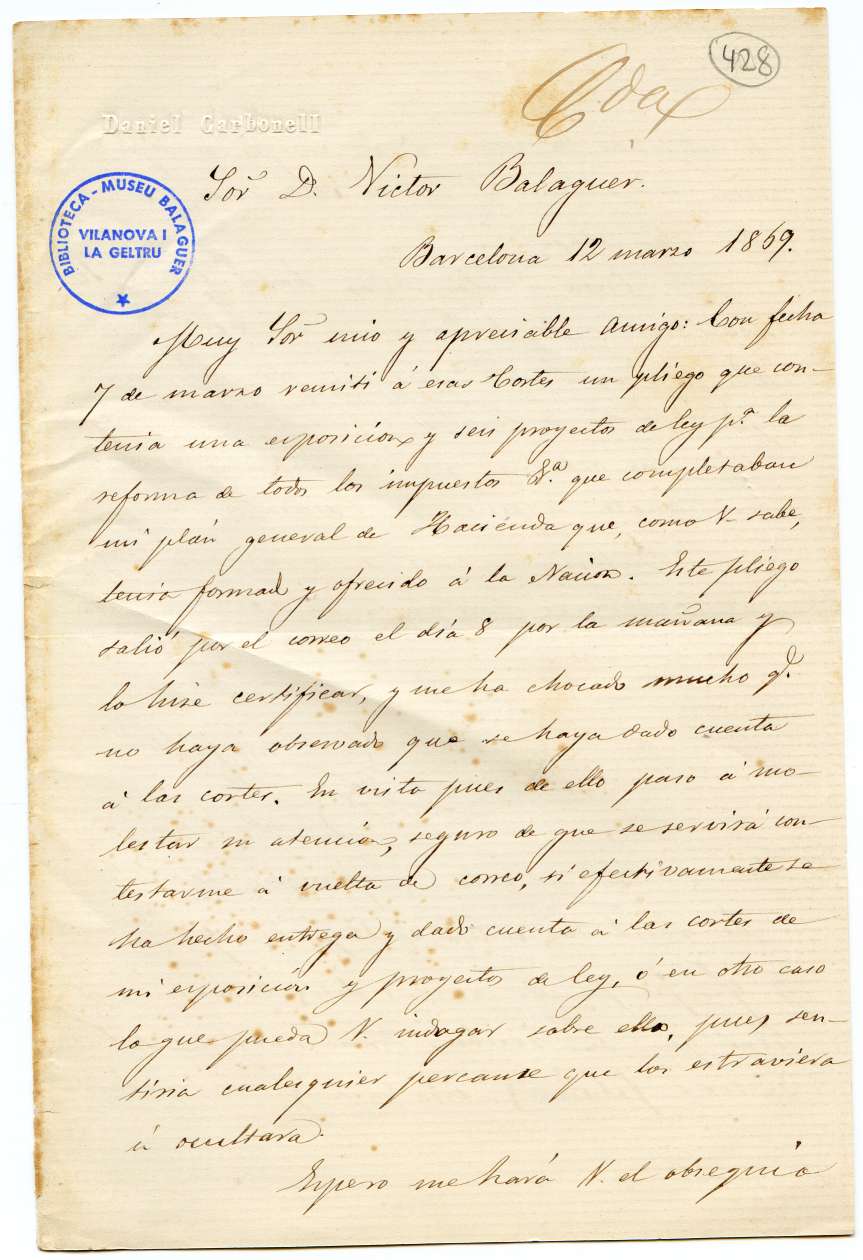 428
Cda
Daniel Carbonell
BIBLIOTECA - MUSEU BALAGUER
VILANOVA I
LA GELTRU
Sor D. Victor Balaguer.
Barcelona 12 marzo 1869.
Muy Sor mio y apreciable Amigo: Con fecha
7 de marzo remiti á esas Cortes un pliego que con-
tenia una exposicion y seis proyectos de ley pa. la
reforma de todos los impuestos &.a que completaban
mi plán general de Haciénda que, como V. sabe,
tenia formado y ofrecido á la Nacion. Este pliego
salió por el correo el día 8 por la mañana y
lo hize certificar, y me ha chocado mucho q.
no haya observado que se haya dado cuenta
á las cortes. En vista pues de ello paso á mo-
lestar su atencion, seguro de que se servirá con-
testarme á vuelta de correo, si efectivamente se
ha hecho entrega y dado cuenta á las cortes de
mi exposición y proyectos de ley, ó en otro caso
lo que pueda V. indagar sobre ello, pues sen-
tiria cualesquier percanse que los estraviera
ú ocultara.
Espero me hará V. el obsequio